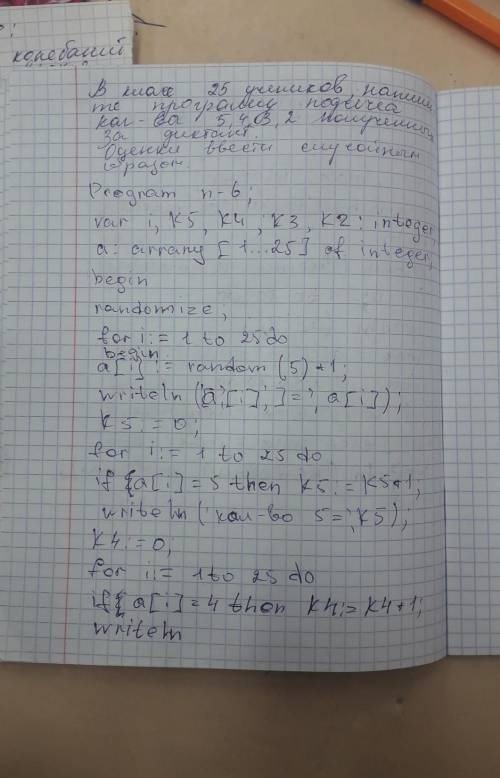 колебаний
В класе 25 учеников, напиши
те программу подсчёта
кол-ва 5,4,3,2 полученных
за диктант.
Оценки ввести случайным
образом.
Program n-6;
var i, K5, K4, K3, K2: integer,
a: array [1...25] of integer,
begin
randomize,
for i:= 1 to 25 do
begin
a[i] := random (5)+1;
writeln ('a[', i, ']=', a[i]);
K5:=0;
for i:= 1 to 25 do
if a[i]=5 then K5:=K5+1;
writeln ('кол-во 5=', K5);
K4:=0;
for i:= 1 to 25 do
if a[i]=4 then K4:=K4+1;
writeln